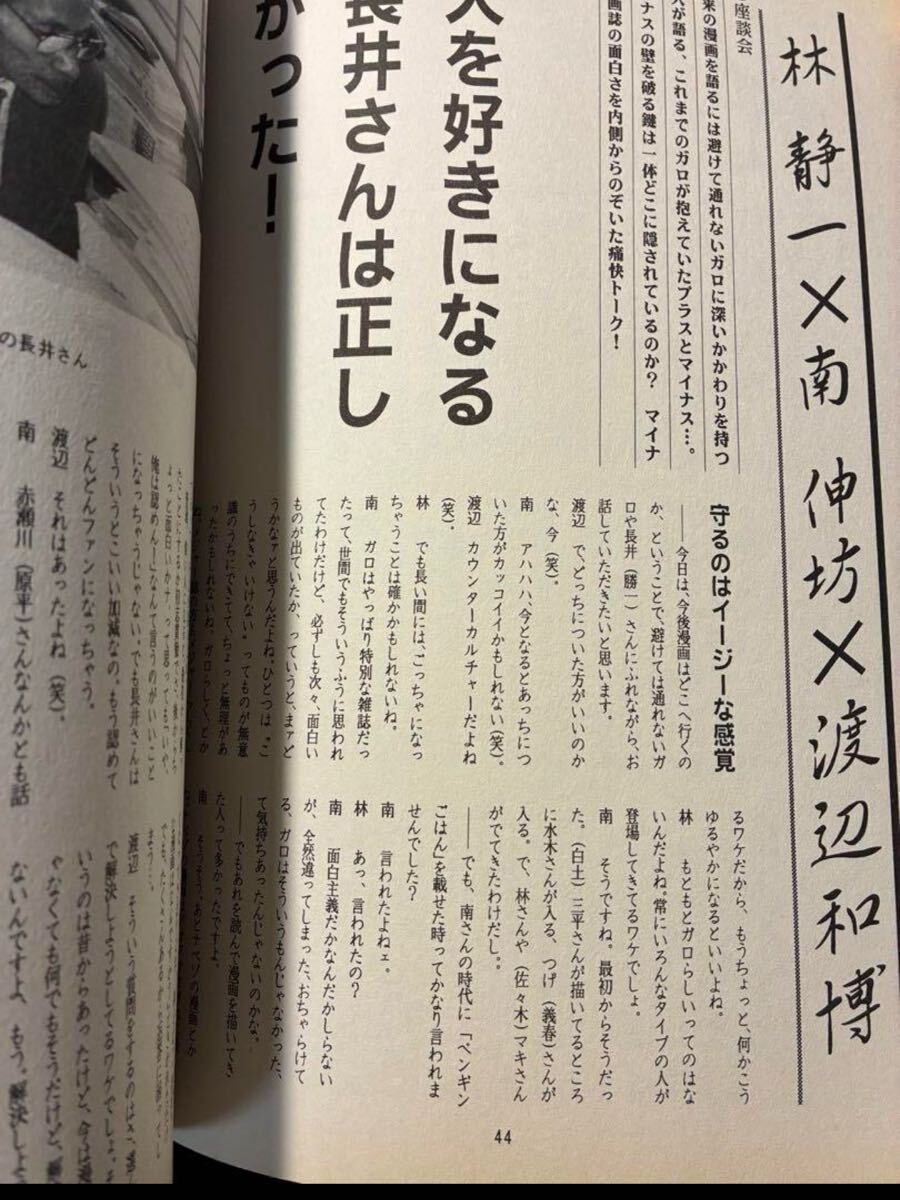 林 静一×南 伸坊×渡辺和博
座談会
来の漫画を語るには避けて通れないガロに深いかかわりを持つ
人が語る、これまでのガロが抱えていたプラスとマイナス…。
ナスの壁を破る鍵は一体どこに隠されているのか? マイナ
画誌の面白さを内側からのぞいた痛快トーク!
人を好きになる
長井さんは正し
かった!
守るのはイージーな感覚
――今日は、今後漫画はどこへ行くの
か、ということで、避けては通れないガ
ロや長井(勝一)さんにふれながら、お
話していただきたいと思います。
渡辺 で、どっちについた方がいいのか
な、今(笑)。
南 アハハハ、今となるとあっちにつ
いた方がカッコイイかもしれない(笑)。
渡辺 カウンターカルチャーだよね
(笑)。
林 でも長い間には、ごっちゃになっ
ちゃうことは確かかもしれないね。
南 ガロはやっぱり特別な雑誌だっ
たって、世間でもそういうふうに思われ
てたわけだけど、必ずしも次々、面白い
ものが出ていたか、っていうと、まァど
うかなァと思うんだよね。ひとつは〝こ
うしなきゃいけない〟ってものが無意
識のうちにできてて、ちょっと無理があ
ったかもしれないね。ガロらしく、とか
るワケだから、もうちょっと、何かこう
ゆるやかになるといいよね。
林 もともとガロらしいってのはな
いんだよね。常にいろんなタイプの人が
登場してきてるワケでしょ。
南 そうですね。最初からそうだっ
た。(白土)三平さんが描いてるところ
に水木さんが入る、つげ(義春)さんが
入る。で、林さんや(佐々木)マキさん
がでてきたわけだし。
――でも、南さんの時代に「ペンギン
ごはん」を載せた時ってかなり言われま
せんでした?
南 言われたよねェ。
林 あっ、言われたの?
南 面白主義だかなんだかしらない
が、全然違ってしまった、おちゃらけて
る、ガロはそういうもんじゃなかった、
て気持ちあったんじゃないのかな。
――でもあれを読んで漫画を描いてき
た人って多かったですよ。
南 そうそう。あとナベゾの漫画とか
44
の長井さん
俺は認めん!」なんて言うのがいいこと
になっちゃうじゃない。でも長井さんは
そういうとこいい加減なの。もう認めて
どんどんファンになっちゃう。
渡辺 それはあったよね(笑)。
南 赤瀬川(原平)さんなんかとも話
渡辺 そういう質問をするのはさ、
で解決しようとしてるワケでしょ。
いうのは昔からあったけど、今は
ゃなくても何でもそうだけど、
ないんですよ、もう。解決しよ